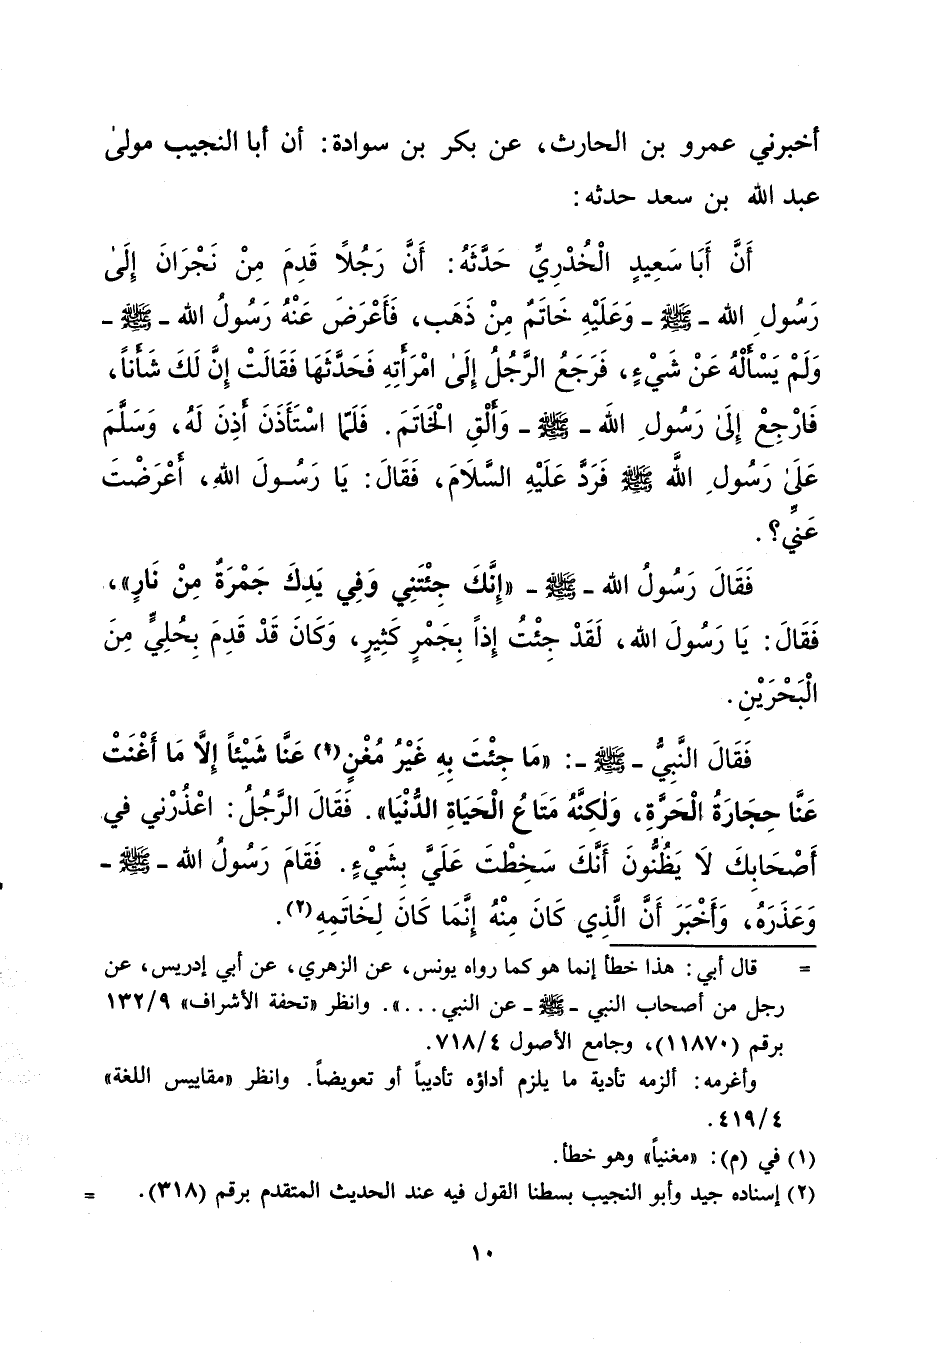 أخبرني عمرو بن الحارث، عن بكر بن سوادة: أن أبا النجيب مولىٰ
عبد الله بن سعد حدثه:
أَنَّ أَبَا سَعِيدٍ الْخُدْرِيِّ حَدَّثَهُ: أَنَّ رَجُلاً قَدِمَ مِنْ نَجْرَانَ إِلَىٰ
رَسُولِ الله ـ ﷺ ـ وَعَلَيْهِ خَاتَمٌ مِنْ ذَهَب، فَأَعْرَضَ عَنْهُ رَسُولُ الله ـ ﷺ ـ
وَلَمْ يَسْأَلْهُ عَنْ شَيْءٍ، فَرَجَعُ الرَّجُلُ إِلَىٰ امْرَأَتِهِ فَحَدَّثَهَا فَقَالَتْ إِنَّ لَكَ شَأْناً،
فَارْجِعْ إِلَىٰ رَسُولِ اللهَ ـ ﷺ ـ وَأَلْقِ الْخَاتَمَ. فَلَمَّا اسْتَأْذَنَ أُذِنَ لَهُ، وَسَلَّمَ
عَلَىٰ رَسُولِ اللَّه ﷺ فَرَدَّ عَلَيْهِ السَّلَامَ، فَقَالَ: يَا رَسُولَ اللهِ، أَعْرَضْتَ
عَنِّي؟.
فَقَالَ رَسُولُ الله ـ ﷺ ـ «إِنَّكَ جِئْتَنِي وَفِي يَدِكَ جَمْرَةٌ مِنْ نَارٍ»،
فَقَالَ: يَا رَسُولَ الله، لَقَدْ جِئْتُ إِذاً بِجَمْرٍ كَثِيرٍ، وَكَانَ قَدْ قَدِمَ بِحُلِيٍّ مِنَ
الْبَحْرَيْنِ.
فَقَالَ النَّبِيُّ ـ ﷺ ـ: «مَا جِئْتَ بِهِ غَيْرُ مُغْنٍ(١) عَنَّا شَيْئاً إِلَّا مَا أَغْنَتْ
عَنَّا حِجَارَةُ الْحَرَّةِ، وَلٰكِنَّهُ مَتَاعُ الْحَيَاةِ الدُّنْيَا». فَقَالَ الرَّجُلُ: اعْذُرْنِي فِي
أَصْحَابِكَ لَا يَظُنُّونَ أَنَّكَ سَخِطْتَ عَلَيَّ بِشَيْءٍ. فَقَامَ رَسُولُ الله ـ ﷺ ـ
وَعَذَرَهُ، وَأَخْبَرَ أَنَّ الَّذِي كَانَ مِنْهُ إِنَّمَا كَانَ لِخَاتَمِهِ(٢).
= قال أبي: هذا خطأ إنما هو كما رواه يونس، عن الزهري، عن أبي إدريس، عن
رجل من أصحاب النبي ـ ﷺ ـ عن النبي...». وانظر «تحفة الأشراف» ١٣٢/٩
برقم (١١٨٧٠)، وجامع الأصول ٧١٨/٤.
وأغرمه: ألزمه تأدية ما يلزم أداؤه تأديباً أو تعويضاً. وانظر «مقاييس اللغة»
٤١٩/٤.
(١) في (م): «مغنياً» وهو خطأ.
(٢) إسناده جيد وأبو النجيب بسطنا القول فيه عند الحديث المتقدم برقم (٣١٨). =
١٠